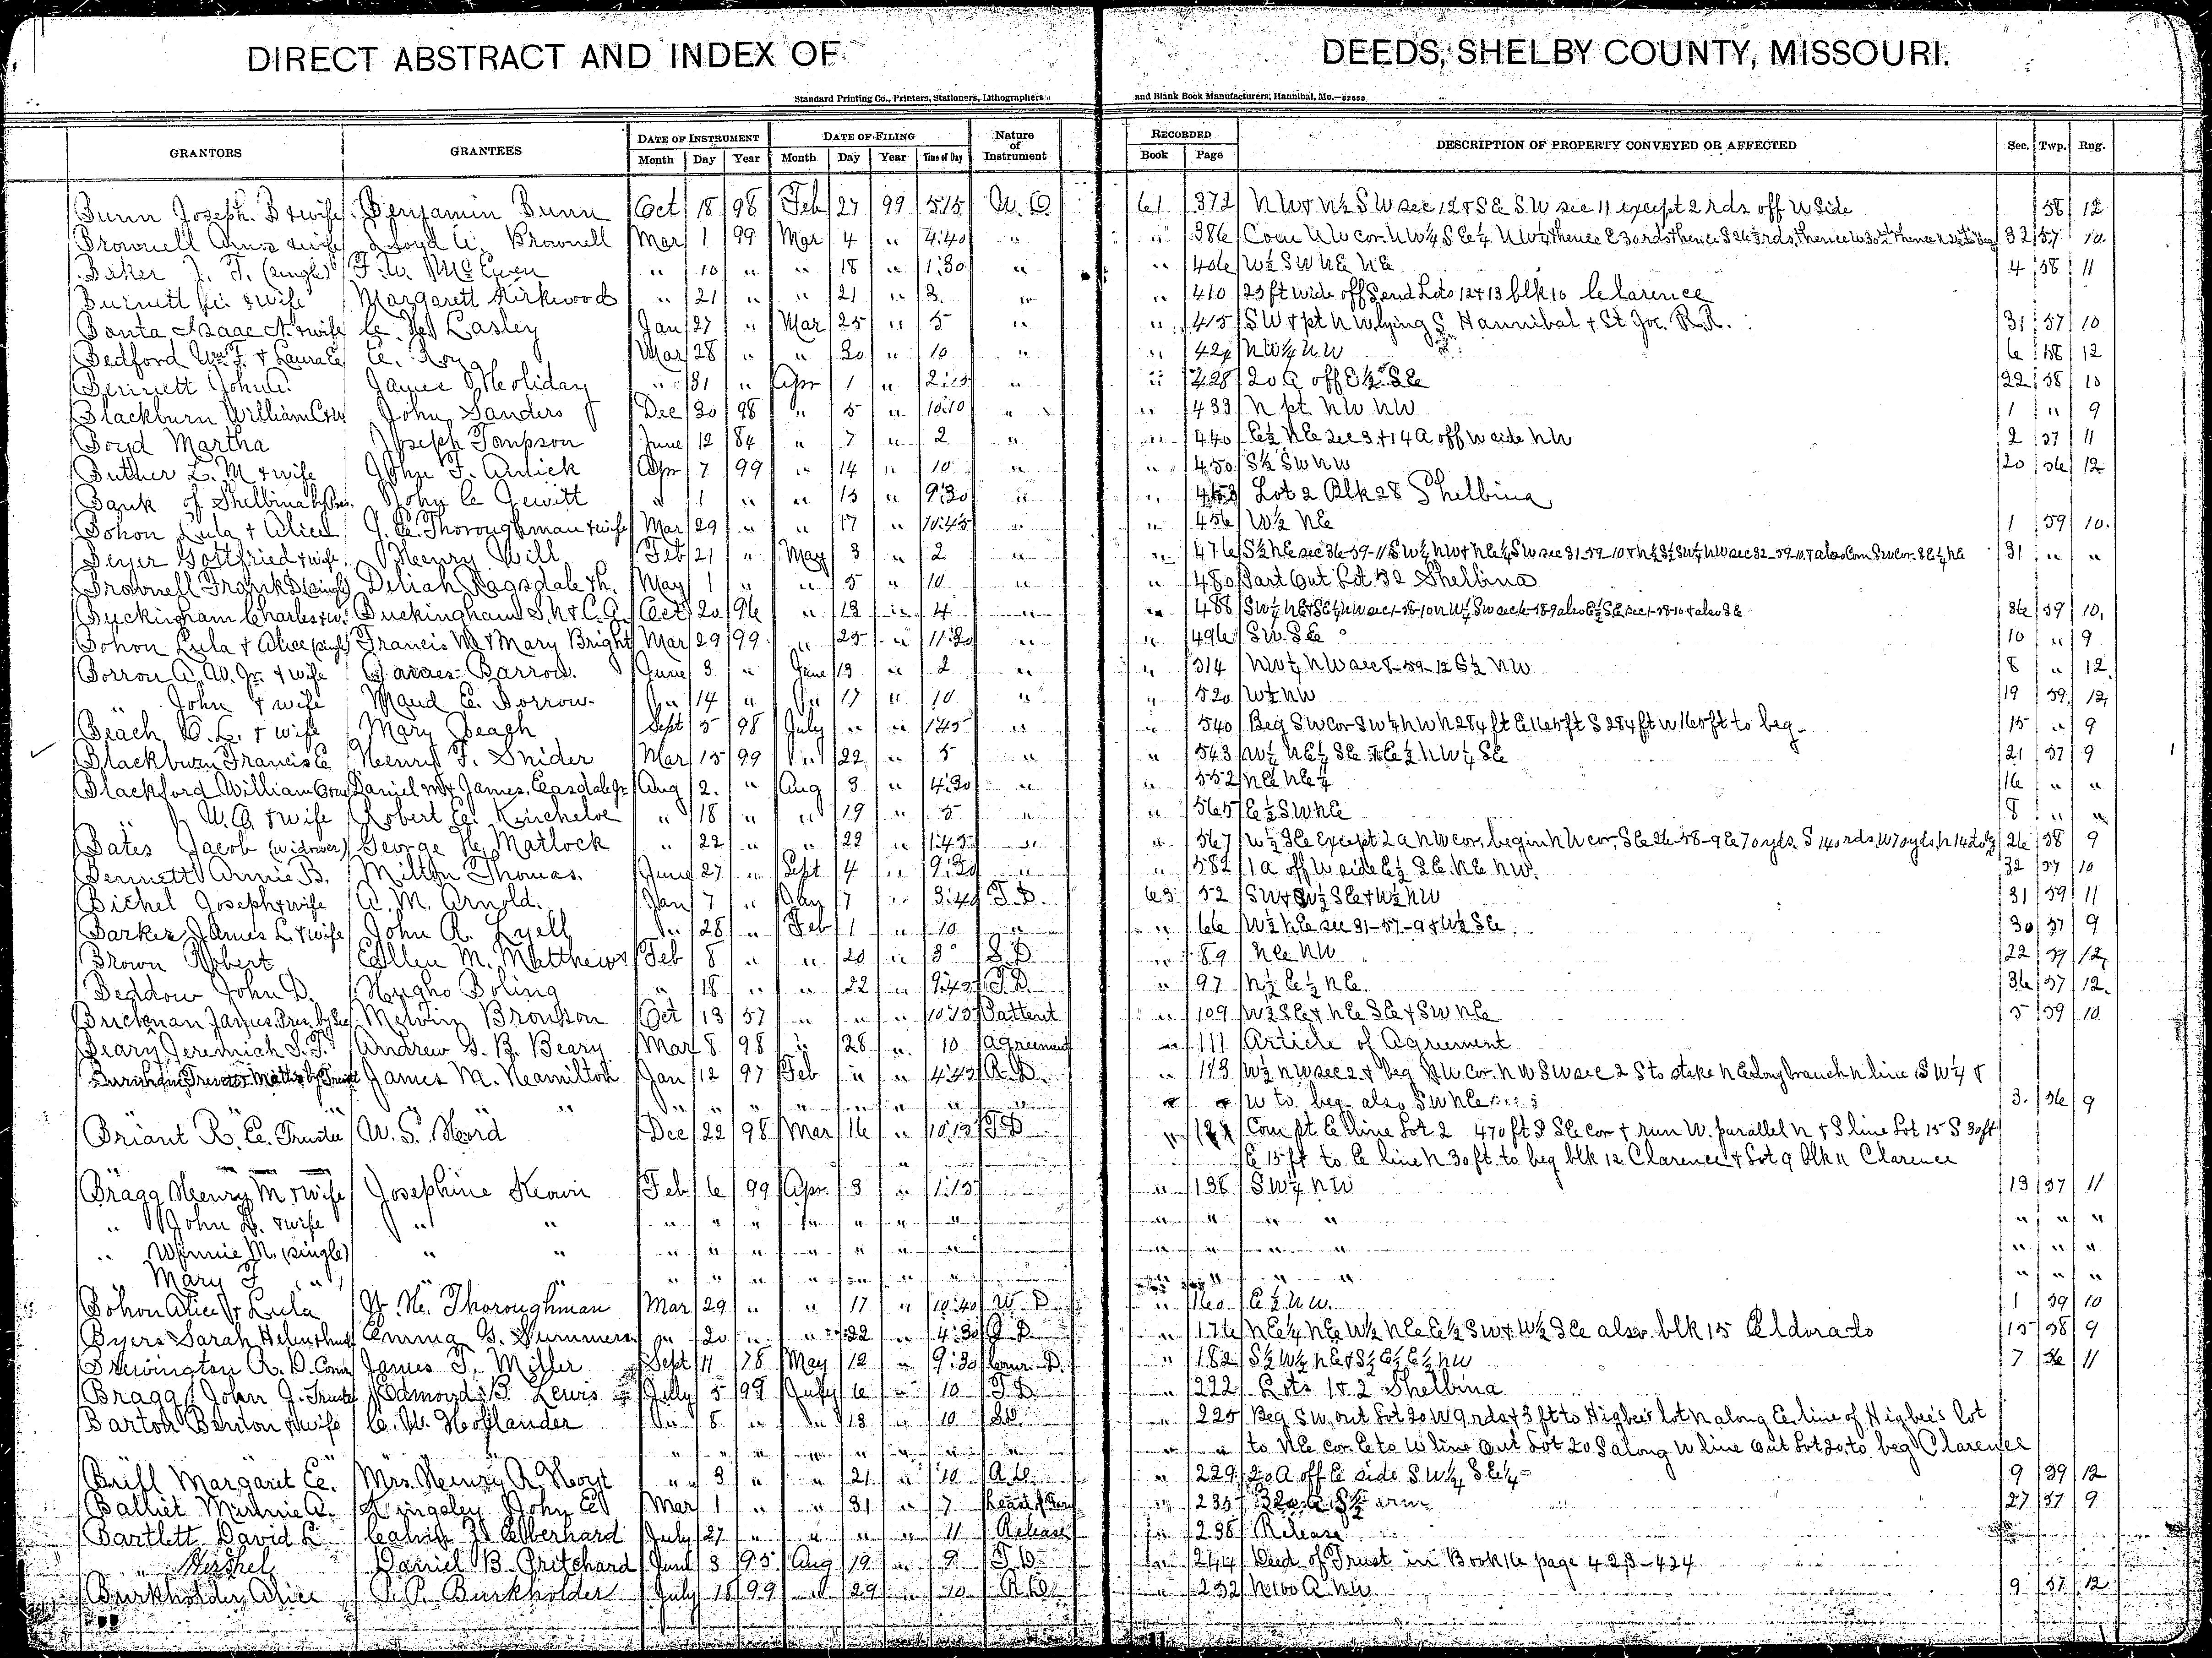 DIRECT ABSTRACT AND INDEX OF DEEDS, SHELBY COUNTY, MISSOURI.
Standard Printing Co., Printers, Stationers, Lithographers and Blank Book Manufacturers, Hannibal, Mo.—82658
GRANTORS GRANTEES DATE OF INSTRUMENT DATE OF FILING Nature of Instrument RECORDED DESCRIPTION OF PROPERTY CONVEYED OR AFFECTED Sec. Twp. Rng.
Month Day Year Month Day Year Time of Day Book Page
Bunn Joseph B & wife Benjamin Bunn Oct 18 98 Feb 27 99 5:15 W. D. 61 372 NW & N½ SW sec 12 & SE SW sec 11 except 2 rds off W Side 58 12
Brownell Amos & wife Lloyd A. Brownell Mar 1 99 Mar 4 " 4:40 " " 386 Com NW cor. NW¼ SE¼ NW¼ thence E 30 rds thence S 26⅔ rds, thence W 30 32 57 10
Baker J. F. (single) F. W. McEwen " 10 " " 18 " 1:30 " " 406 W½ SW NE NE 4 58 11
Burnett & wife Margarett Kirkwood " 21 " " 21 " 3 " " 410 25 ft wide off S end Lots 12 & 13 blk 10 Clarence
Bonta Isaac N. & wife C. Lasley Jan 27 " Mar 25 " 5 " " 415 SW & pt NW lying S Hannibal & St Joe. R.R. 31 57 10
Bedford Wm F. & Laura E E. Roy Mar 28 " " 30 " 10 " " 424 NW¼ NW 6 58 12
Bennett John A. James Holiday " 31 " Apr 1 " 2:15 " " 428 20 a off E½ SE 22 58 10
Blackburn William C & w John Sanders Dec 30 98 " 5 " 10:10 " " 433 N pt. NW NW 1 " 9
Boyd Martha Joseph Tompson June 12 84 " 7 " 2 " " 440 E½ NE sec 3 & 14 a off W side NW 2 57 11
Butler L. M & wife John F. Amick Apr 7 99 " 14 " 10 " " 450 S½ SW NW 20 56 12
Bank of Shelbina by Pres. John C Jewitt " 1 " " 15 " 9:30 " " 453 Lot 2 Blk 28 Shelbina
Bohon Lula & Alice J. E. Thoroughman & wife Mar 29 " " 17 " 10:45 " " 456 W½ NE 1 59 10
Beyer Gottfried & wife Henry Will Feb 21 " May 3 " 2 " " 476 S½ NE sec 36-59-11 SW¼ NW & NE¼ SW sec 31-59-10 31 " "
Brownell Frank D (single) Deliah Ragsdale May 1 " " 5 " 10 " " 480 Part Out Lot 32 Shelbina
Buckingham Charles & w. Buckingham S. N. & C. A. Oct 20 96 " 13 " 4 " " 488 36 59 10
Bohon Lula & Alice (single) Francis W & Mary Bright Mar 29 99 " 25 " 11:30 " " 496 SW SE 10 " 9
Borron A. W. Jr. & wife James Barrow. June 3 " June 13 " 2 " " 514 NW¼ NW sec 8-59-12 E½ NW 8 " 12
" John & wife Maud E. Borrow " 14 " " 17 " 10 " " 520 W½ NW 19 59 12
Beach O. L. & wife Mary Beach Sept 5 98 July " " 1:45 " " 540 Beg SW cor SW¼ NW N 284 ft E 1165 ft S 284 ft W 1165 ft to beg 15 " 9
Blackburn Francis E Henry F. Snider Mar 15 99 " 22 " 5 " " 543 W½ NE¼ SE & E½ NW¼ SE 21 57 9
Blackford William Daniel M & James Easdale Jr Aug 2 " Aug 3 " 4:30 " " 552 NE NE¼ 16 " "
" W. A & wife Robert E. Kincheloe " 18 " " 19 " 5 " " 565 E½ SW NE 8 " "
Bates Jacob (widower) George H. Matlock " 22 " " 22 " 1:45 " " 567 W½ SE Except 2 a NW cor, begin NW cor, SE 26-58-9 E 70 yds. S 140 rds W 70 yds 26 58 9
Bennett Annie B. Milton Thomas. June 27 " Sept 4 " 9:30 " " 582 1 a off W side E½ SE. NE NW. 32 57 10
Bichel Joseph & wife A. M. Arnold. Jan 7 " Jan 7 " 3:40 T. D. 63 52 SW & W½ SE & W½ NW 31 59 11
Barker James L & wife John R. Lyell " 28 " Feb 1 " 10 " " 66 W½ NE sec 31-57-9 & W½ SE. 30 57 9
Brown Robert Ellen M. Matthews Feb 8 " " 20 " 3 S. D. " 89 NE NW 22 59 12
Beddow John D. Hugho Boling " 18 " " 22 " 9:45 T. D. " 97 N½ E½ NE. 36 57 12
Buchanan James Pres. by Sec Melvin Bronson Oct 13 57 " " " 10:15 Pattent " 109 W½ SE & NE SE & SW NE 5 59 10
Beary Jeremiah S. T. Andrew G. B. Beary Mar 8 98 " 28 " 10 Agreement " 111 Article of Agrument
James M. Hamilton Jan 12 97 Feb " " 4:45 " 113 W½ NW sec 2 & beg NW cor. NW SW sec 2 S to stake N E along branch N line SW¼ &
" " " " " " " " " " " W to beg also SW NE 3 56 9
Briant R. E. Trustee W. S. Hord Dec 22 98 Mar 16 " 10:15 T D Com pt. E line Lot 2 470 ft S SE cor & run W. parallel N & S line Lot 15 S 30 ft
E 15 ft to E line N 30 ft to beg blk 12 Clarence & Lot 9 blk 11 Clarence
Bragg Henry M. & wife Josephine Keown Feb 6 99 Apr. 3 " 1:15 " " 136 SW¼ NW 13 57 11
" John & wife " " " " " " " " " " " " " " " " "
" Winnie M. (single) " " " " " " " " " " " " " " " " "
" Mary F " " " " " " " " " " " " " " " " " "
Bohon Alice & Lula W. H. Thoroughman Mar 29 " " 17 " 10:40 W D. " 160 E½ NW. 1 59 10
Byers Sarah Helen Emma G. Summers " 20 " " 22 " 4:30 " 176 NE¼ NE W½ NE E½ SW & W½ SE also blk 15 Eldorado 15 58 9
Brewington R. D. Com James T. Miller Sept 11 78 May 12 " 9:30 Com D. " 182 S½ W½ NE & S½ E½ E½ NW 7 56 11
Bragg John J. Trustee Edmond B. Lewis July 5 99 July 6 " 10 T D " 222 Lots 1 & 2 Shelbina
Barton Benton & wife C. W. Hollander " 8 " " 13 " 10 " 225 Beg SW out Lot 20 W 9 rds & 3 ft to Higbee's lot N along E. line of Higbee's lot
" " " " " " " " " " to NE cor. E to W line Out Lot 20 S along W line Out Lot 20, to beg Clarence
Brill Margaret E. Mrs. Henry R. Hoyt " 3 " " 21 " 10 " 229 20 A off E side SW¼ SE¼ 9 59 12
Balliet Minnie A. Kingsley John E Mar 1 " " 31 " 7 " 235 27 57 9
Bartlett David L Calvin F. Eberhard July 27 " " " " 11 Release " 236 Release
" Hershel Daniel B. Pritchard June 3 95 Aug 19 " 9 T D " 244 Deed of Trust in Book 16 page 423-424
Burkholder Alice P. P. Burkholder July 18 99 " 29 " 10 " 252 N 100 A NW. 9 57 12